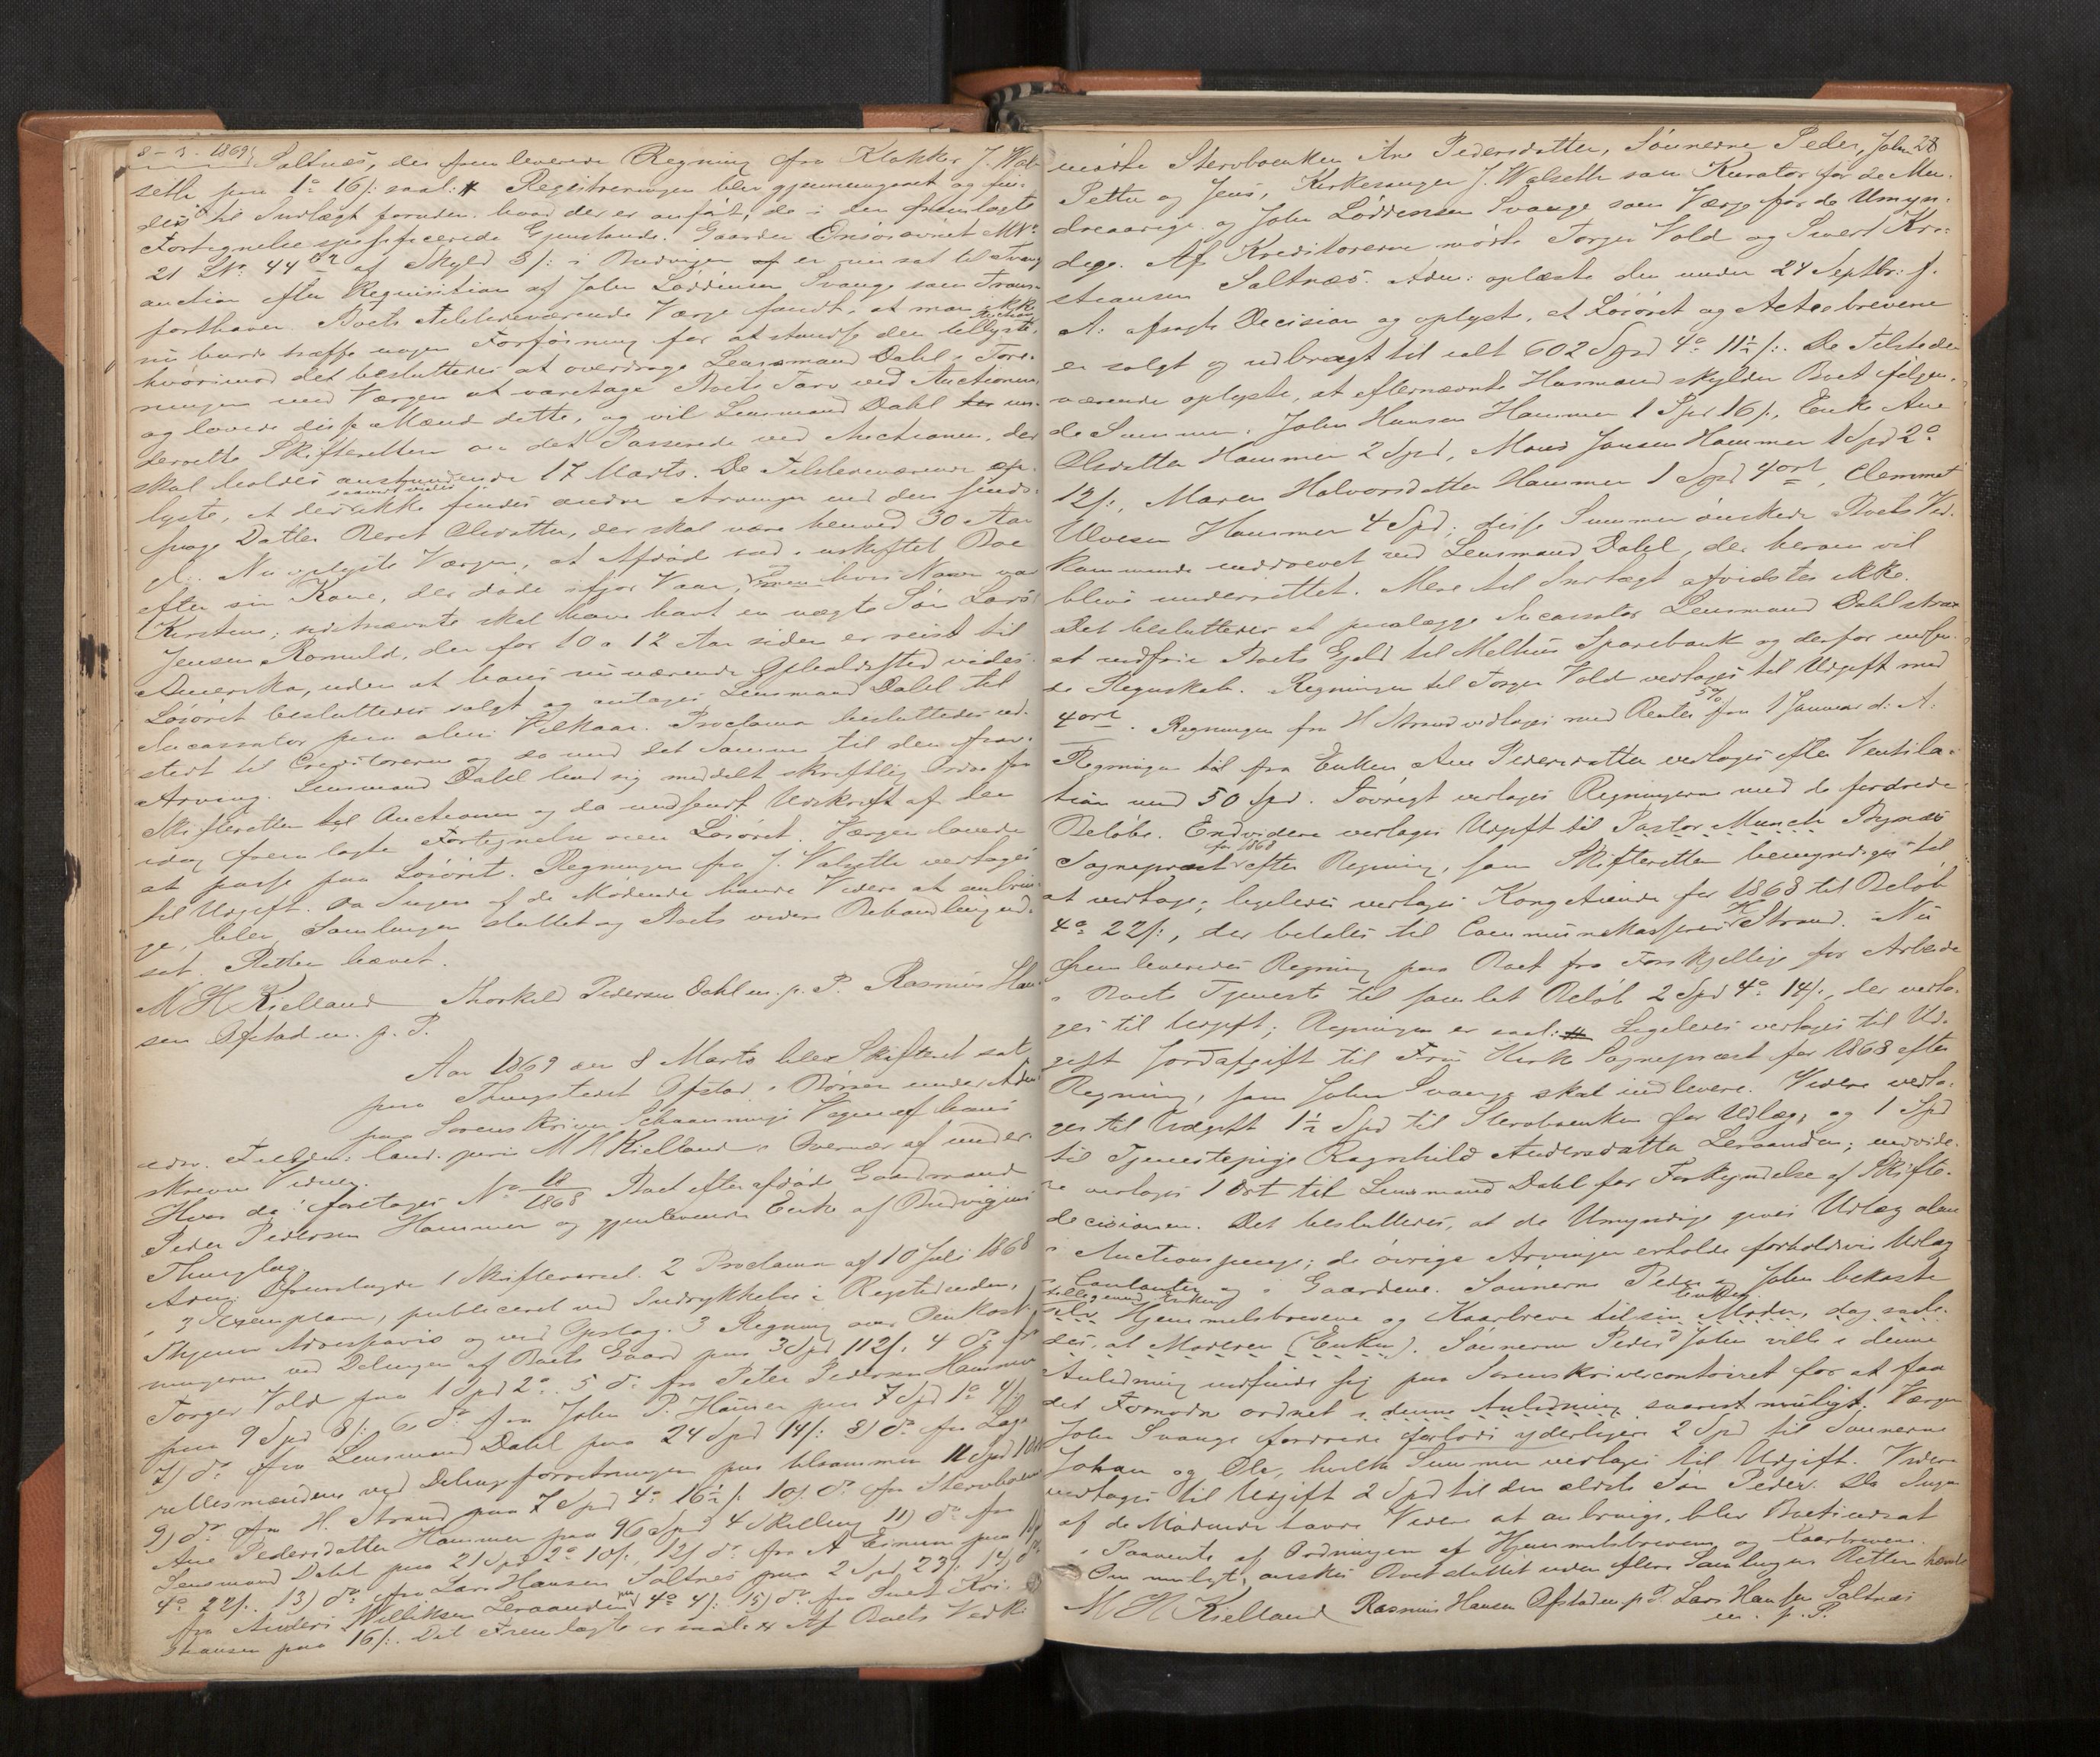 8-3-1869
Saltnæs, der fremleverede Regning fra Klokker J. Wal-
seth paa 1o 16 s: saal: # Registreringen blev gjennemgaaet og fin-
des til Indtægt foruden hvad der er anført, de i den fremlagte
Fortegnelse spesificerede Gjenstande. Gaarden Onsöiævnet MNo
21 LNo: 44 af Skyld 3 s: i Budvigen er nu sat til Tvangs
auction efter Requisition af John Löddensen Svange som Trans-
porthaver. Boets tilstedeværende Værge fandt, at man ikke
nu burde træffe nogen Forföining for at standse den tillyste Auction,
hvorimod det besluttedes at overdrage Lensmand Dahl i Fore-
ningen med Værgen at varetage Boets Tarv ved Auctionen
og lovede disse Mænd dette, og vil Lensmand Dahl un-
derrette Skifteretten om det Passerede ved Auctionen, der
skal holdes anstundende 17 Marts. De Tilstedeværende op-
lyste, at der saavidt vides ikke findes andre Arvinger end den sinds-
svage Datter Beret Olsdatter, der skal være henved 30 Aar
gl. Nu oplyste Værgen, at Afdöde sad i uskiftet Boe
efter sin Kone, der döde ifjor Vaar, hvis Navn var
Kirstine; sidstnævnte skal have havt en uægte Sön Lars
Jensen Romuld, der for 10 a 12 Aar siden er reist til
Amerika, uden at hans nuværende Opholdssted vides.
Lösöret besluttedes solgt og antages Lensmand Dahl til
Incassator paa alm: Vilkaar. Proclama besluttedes ud-
stedt til Creditorerne og da med det Samme til den frav.
Arving. Lensmand Dahl lod sig meddelt skriftlig Ordre fra
Skifteretten til Auctionen og da medsendt Udskrift af den
idag fremlagte Fortegnelse over Lösöret. Værgen lovede
at passe paa Lösöret. Regningen fra J. Valseth vedtages
til Udgift. Da Ingen af de Mödende havde Videre at anbrin-
ge, blev Samlingen sluttet og Boets videre Behandling ud-
sat. Retten hævet.
M H Kielland Thorkild Pedersen Dahl m. p. P. Rasmus Han-
sen Ofstad m. p. P.
Aar 1869 den 8 Marts blev Skifteret sat
paa Thingstedet Ofstad i Börsen under Adm:
paa Sorenskriver Schaannings Vegne af hans
edsv. Fuldm: Cand: juris M H Kielland i Overvær af under-
skrevne Vidner.
Hvor da: foretages No 18/1868 Boet efter afdöde Gaardmand
Peder Pedersen Hammer og gjenlevende Enke af Budvigens
Thinglag.
Adm: fremlagde 1 Skifteværel. 2 Proclama af 10 Juli 1868
i 2 Exemplarer, publiceret ved Indrykkelse i Rigstidenden,
Thjems Adresseavis og ved Opslag. 3 Regning over Omkost-
ningerne ved Delingen af Boets Gaard paa 3 Spd 112 s. 4 do fra
Torger Vold paa 1 Spd 2o. 5 do fra Peter Pedersen Hammer
paa 9 Spd 8 s: 6 do fra John P. Hammer paa 7 Spd 1o 4 s
7) do fra Lensmand Dahl paa 24 Spd 14 s: 8) do fra Lag-
rettesmændene ved Delingsforretningen paa tilsammen 11 Spd
9) do fra H. Strand paa 7 Spd 4o 16½ s. 10) do fra Stervboenken
Ane Pedersdatter Hammer paa 96 Spd 4 Skilling 11) do fra
Lensmand Dahl paa 21 Spd 2o 10 s, 12) do fra A Esmum paa
4o 22 s. 13) do fra Lars Hansen Saltnes paa 2 Spd 23 s: 14) do
fra Anders Williksen Leraanden paa 4o 4 s: 15) do fra Sivert Kri-
stiansen paa 16 s:. Det Fremlagte er saal: # Af Boets Vedk:
28
mödte Stervboenken Ane Pedersdatter, Sönnerne Peder, John
Petter og Jens, Kirkesanger J. Walseth som Kurator for de Min-
dreaarige og John Löddensen Svange som Værge for de Umyn-
dige. Af Kreditorerne mödte Torger Vold og Sivert Kri-
stiansen Saltnæs. Adm: oplæste den under 24 Septbr: f.
A: afsagte Decision og oplyste, at Lösöret og Actiebrevene
er solgt og udbragt til ialt 602 Spd 4o 11½ s:. De Tilstede-
værende oplyste, at efternævnte Husmænd skylder Boet fölgen-
de Summer: John Hansen Hammer 1 Spd 16 s, Enke Ane
Olsdatter Hammer 2 Spd, Mons Jonsen Hammer 1 Spd 2o
12 s:, Maren Halvorsdatter Hammer 1 Spd 4 ort, Clemmet
Ulvesen Hammer 4 Spd; disse Summer önskede Boets Ved-
kommende inddrevet ved Lensmand Dahl, der herom vil
blive underrettet. Mere til Indtægt afvidstes ikke.
Det besluttedes at paalægge Incassator Lensmand Dahl strax
at indfrie Boets Gjeld til Melhus Sparebank og derfor indsen-
de Regnskab. Regningen til Torger Vold vedtages til Udgift med
4 ort. Regningen fra H Strand vedtages med Renter 5% fra 1 Januar d: A:
Regningen fra Enken Ane Pedersdatter vedtages efter Ventila-
tion med 50 Spd. Iövrigt vedtages Regningerne med de fordrede
Belöbe. Endvidere vedtages Udgift til Pastor Munch Bynæs
Sognepræst for 1868 efter Regning, som Skifteretten bemyndiges til
at vedtage; ligeledes vedtages Kongetiende for 1868 til Belöb
4o 22 s:, der betales til Communekasserer H Strand. Nu
fremleveredes Regning paa Boet fra Forskjellige for Arbeide
i Boets Tjeneste til samlet Belöb 2 Spd 4o 14 s, der vedta-
ges til Udgift; Regningen er saal: # Ligeledes vedtages til Ud-
gift Jordafgift til Fru Kirk Sognepræst for 1868 efter
Regning, som John Svange skal indlevere. Videre vedta-
ges til Udgift 1½ Spd til Stervboenken for Udlæg, og 1 Spd
til Tjenestepige Ragnhild Andersdatter Leraanden; endvide-
re vedtages 1 Ort til Lensmand Dahl for Forkyndelse af Skifte-
decisionen. Det besluttedes, at de Umyndige gives Udlæg alene
i Auctionspenge; de övrige Arvinger erholde forholdsvis Udlæg
i Contanter og i Gaardene. Sönnerne Peder og John bekoste
selv Hjemmelsbrevene og Kaarbrev til sin Moder, dog saale-
des, at Moderen (Enken). Sönnerne Peder & John ville i denne
Anledning indfinde sig paa Sorenskrivercontoiret for at faa
det Fornödne ordnet i denne Anledning snarest muligt. Værgen
John Svange fordrede forlods yderligere 2 Spd til Sönnerne
Johan og Ole, hvilke Summer vedtages til Udgift. Videre
vedtages til Udgift 2 Spd til den ældste Sön Peder. Da Ingen
af de Mödende havde Videre at anbringe, blev Boet udsat
i Paavente af Ordningen af Hjemmelsbrevene og Kaarbrevene.
Om muligt, önskes Boet sluttet uden flere Samlinger. Retten hævet
M H Kielland Rasmus Hansen Ofstad m. p. P. Lars Hansen Saltnæs
m. p. P.